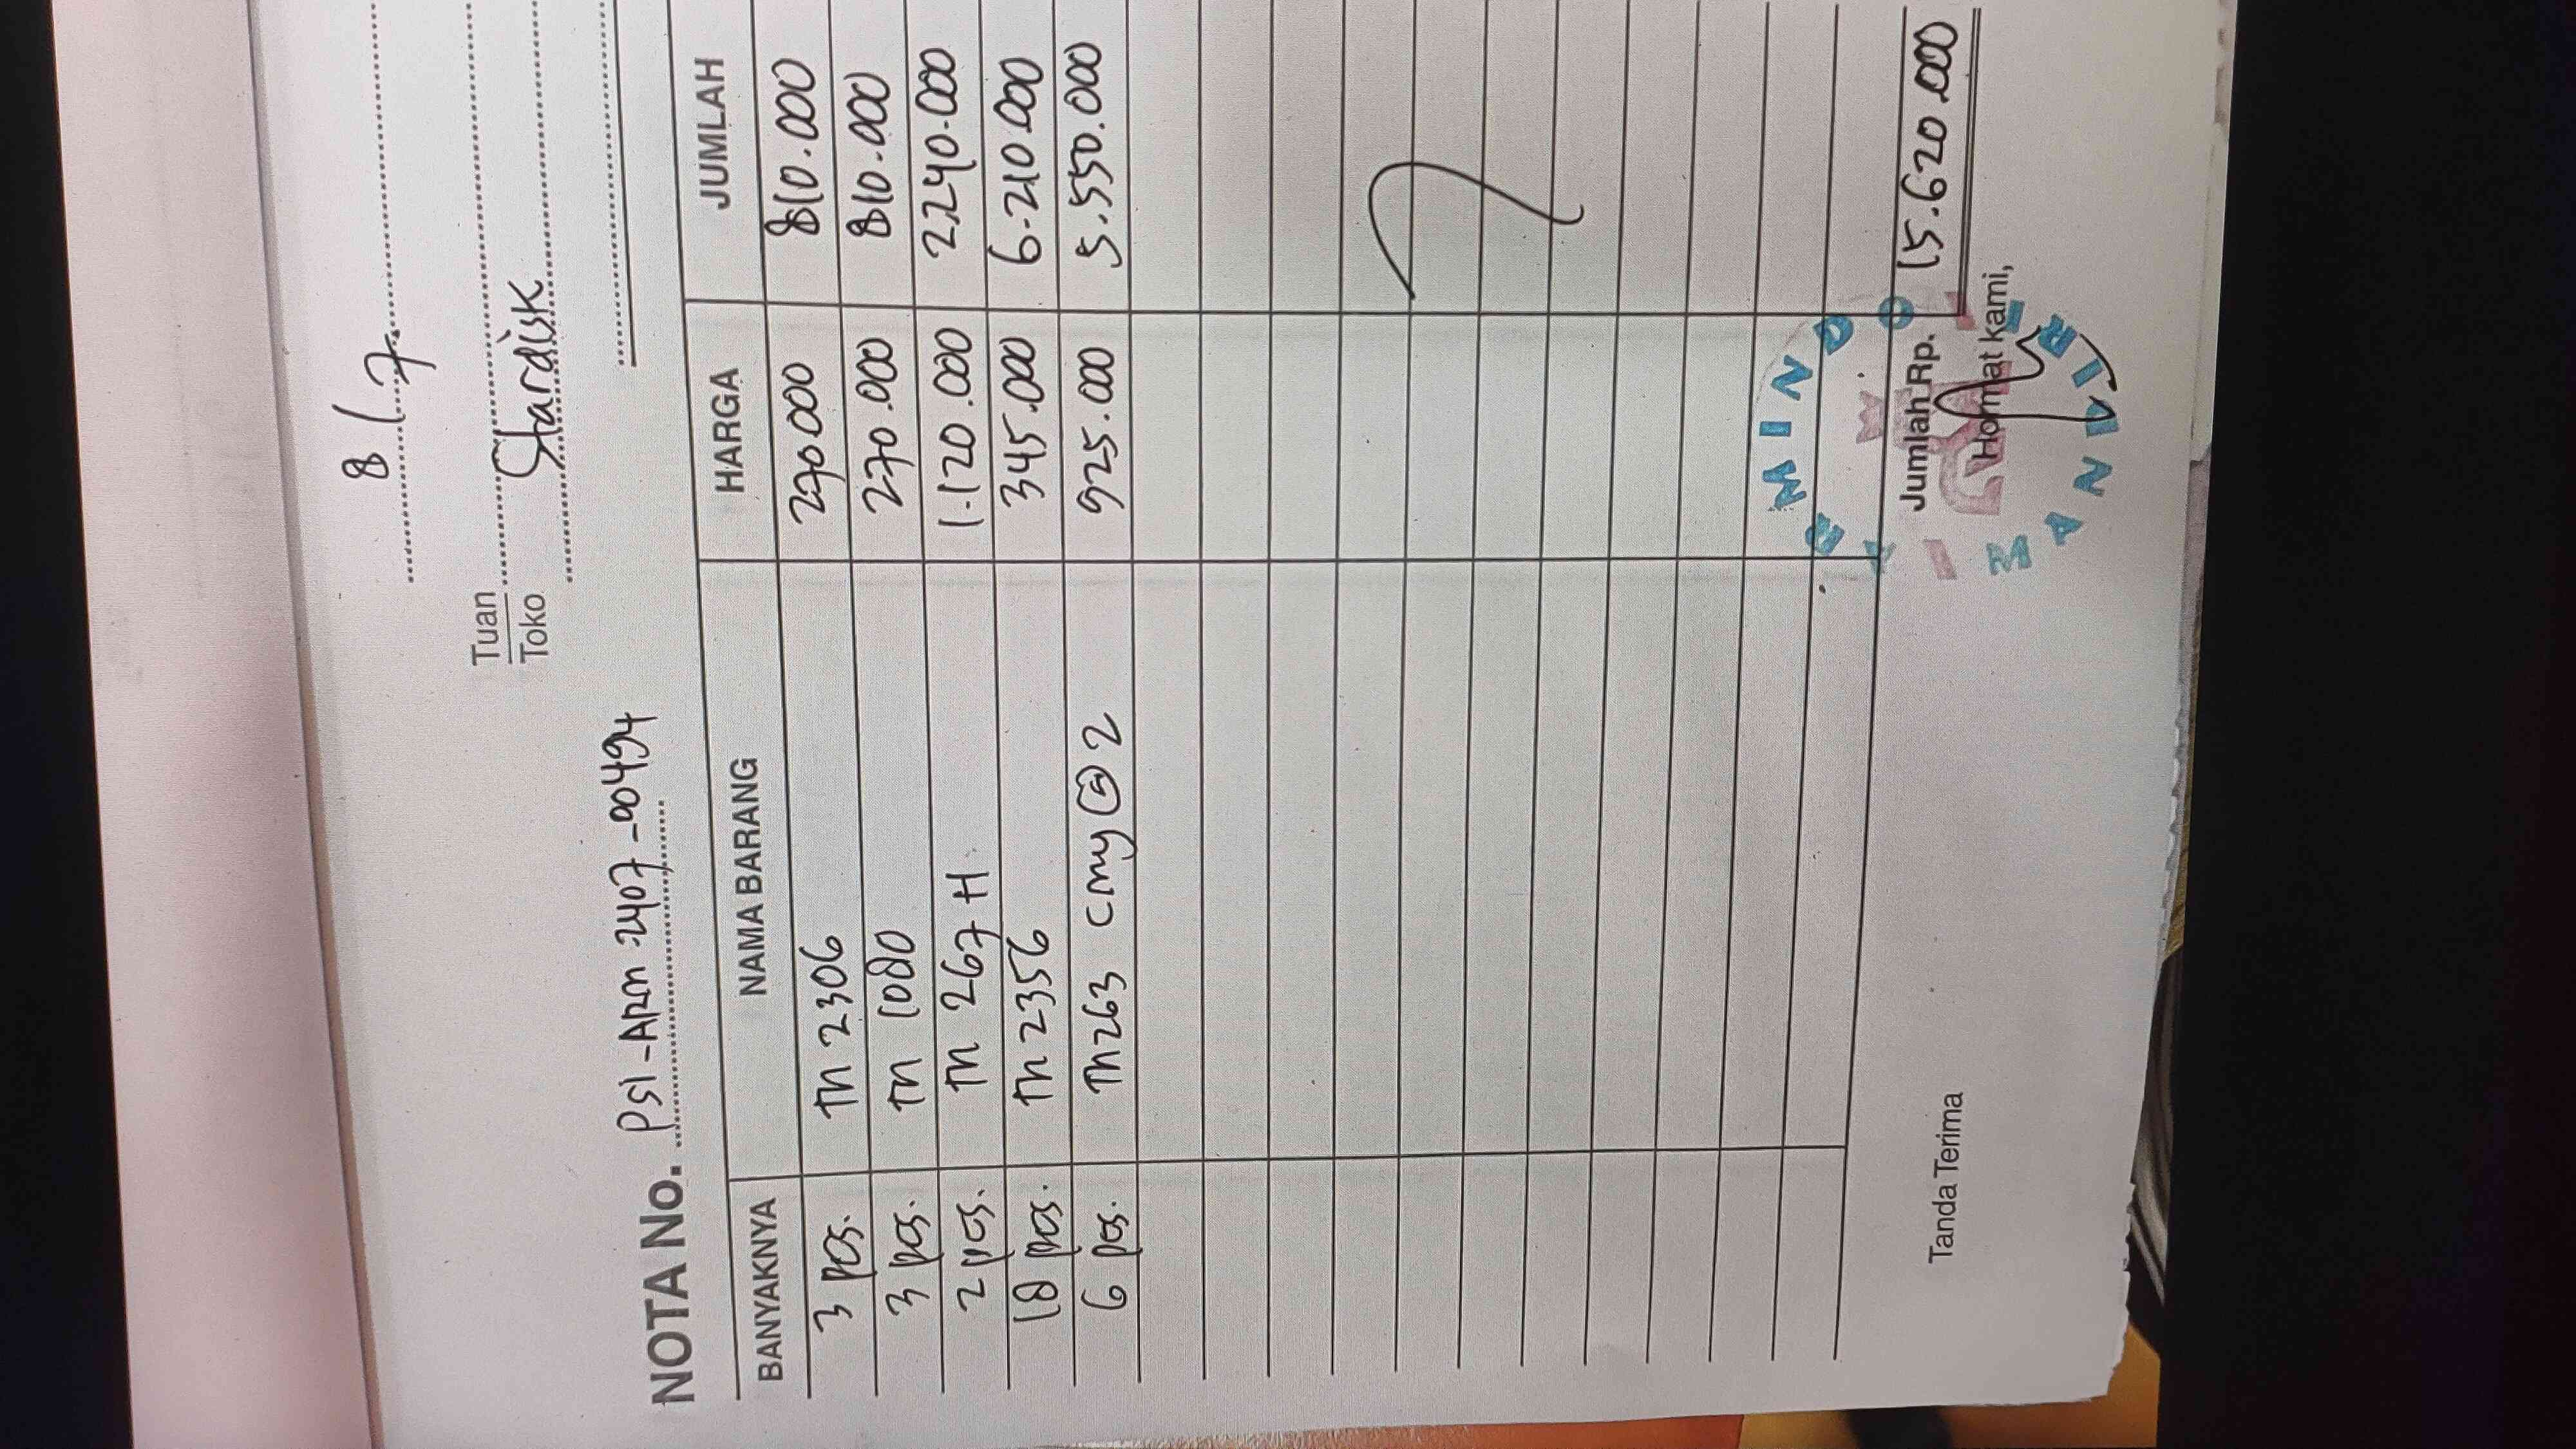 8/7.
Tuan
Toko Stardisk
NOTA No. PSI-APM-2407-00494
BANYAKNYA NAMA BARANG HARGA JUMLAH
3 pcs. Tn 2306 270.000 810.000
3 pcs. Tn 1080 270.000 810.000
2 pcs. Tn 267 H 1.120.000 2.240.000
18 pcs. Tn 2356 345.000 6.210.000
6 pcs. Tn 263 cmy @ 2 925.000 5.550.000
Jumlah Rp. 15.620.000
Tanda Terima Hormat kami,
MANDIRI